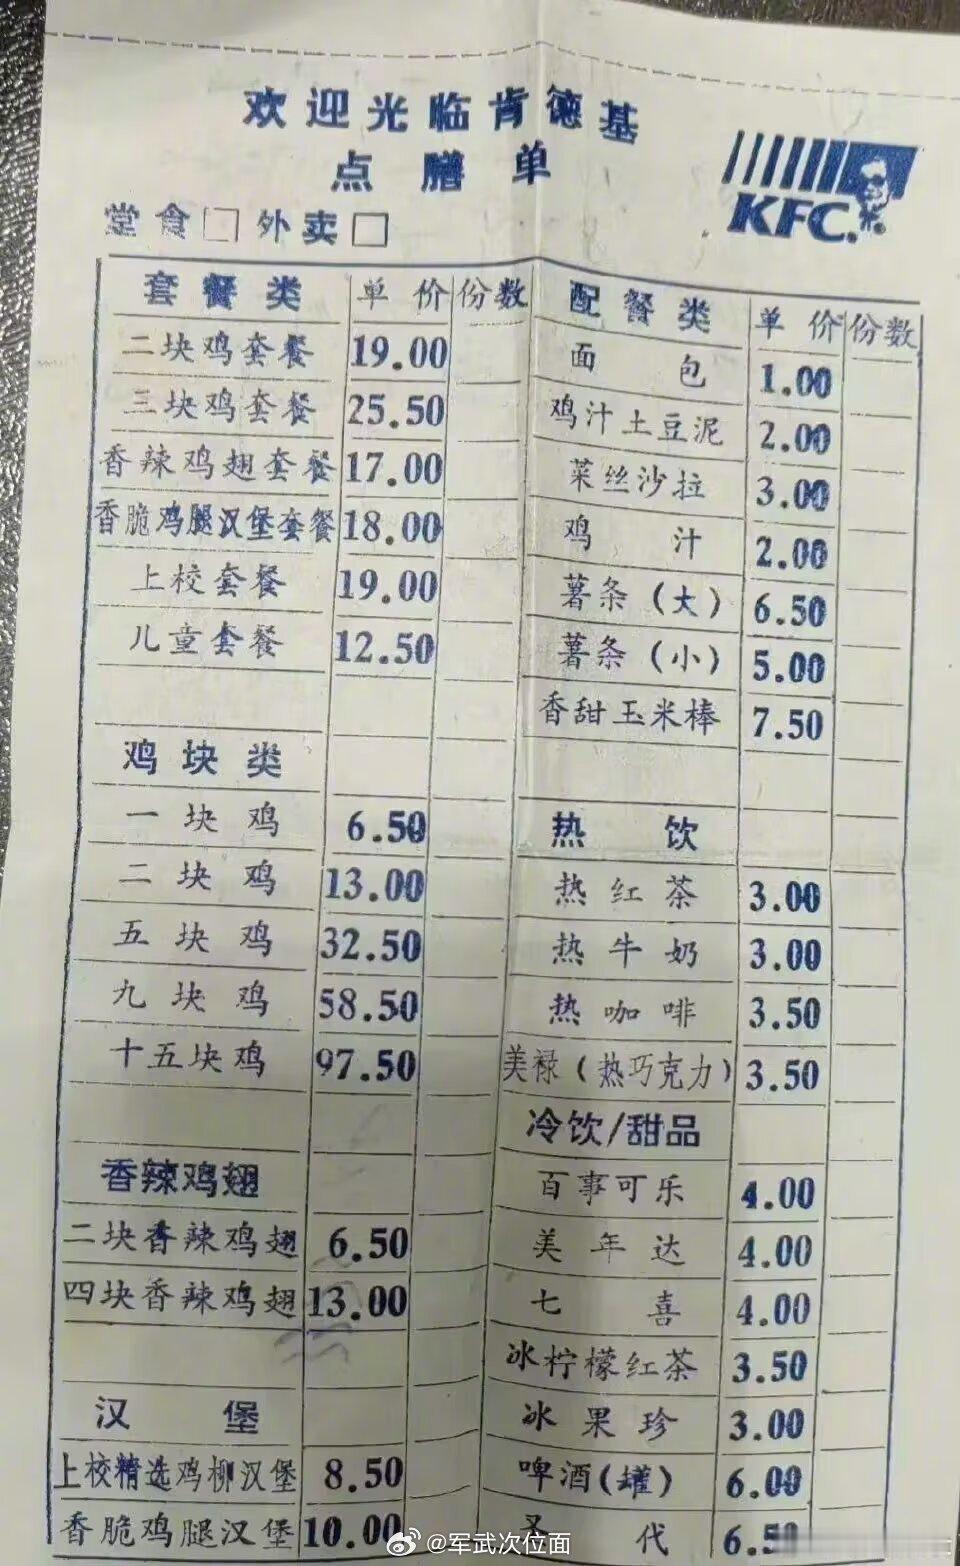 欢迎光临肯德基
点膳单
KFC.
堂食□ 外卖□
套餐类 单价 份数
二块鸡套餐 19.00
三块鸡套餐 25.50
香辣鸡翅套餐 17.00
香脆鸡腿汉堡套餐 18.00
上校套餐 19.00
儿童套餐 12.50
鸡块类
一块鸡 6.50
二块鸡 13.00
五块鸡 32.50
九块鸡 58.50
十五块鸡 97.50
香辣鸡翅
二块香辣鸡翅 6.50
四块香辣鸡翅 13.00
汉堡
上校精选鸡柳汉堡 8.50
香脆鸡腿汉堡 10.00
配餐类 单价 份数
面包 1.00
鸡汁土豆泥 2.00
菜丝沙拉 3.00
鸡汁 2.00
薯条(大) 6.50
薯条(小) 5.00
香甜玉米棒 7.50
热饮
热红茶 3.00
热牛奶 3.00
热咖啡 3.50
美禄(热巧克力) 3.50
冷饮/甜品
百事可乐 4.00
美年达 4.00
七喜 4.00
冰柠檬红茶 3.50
冰果珍 3.00
啤酒(罐) 6.00
代 6.50
@军武次位面